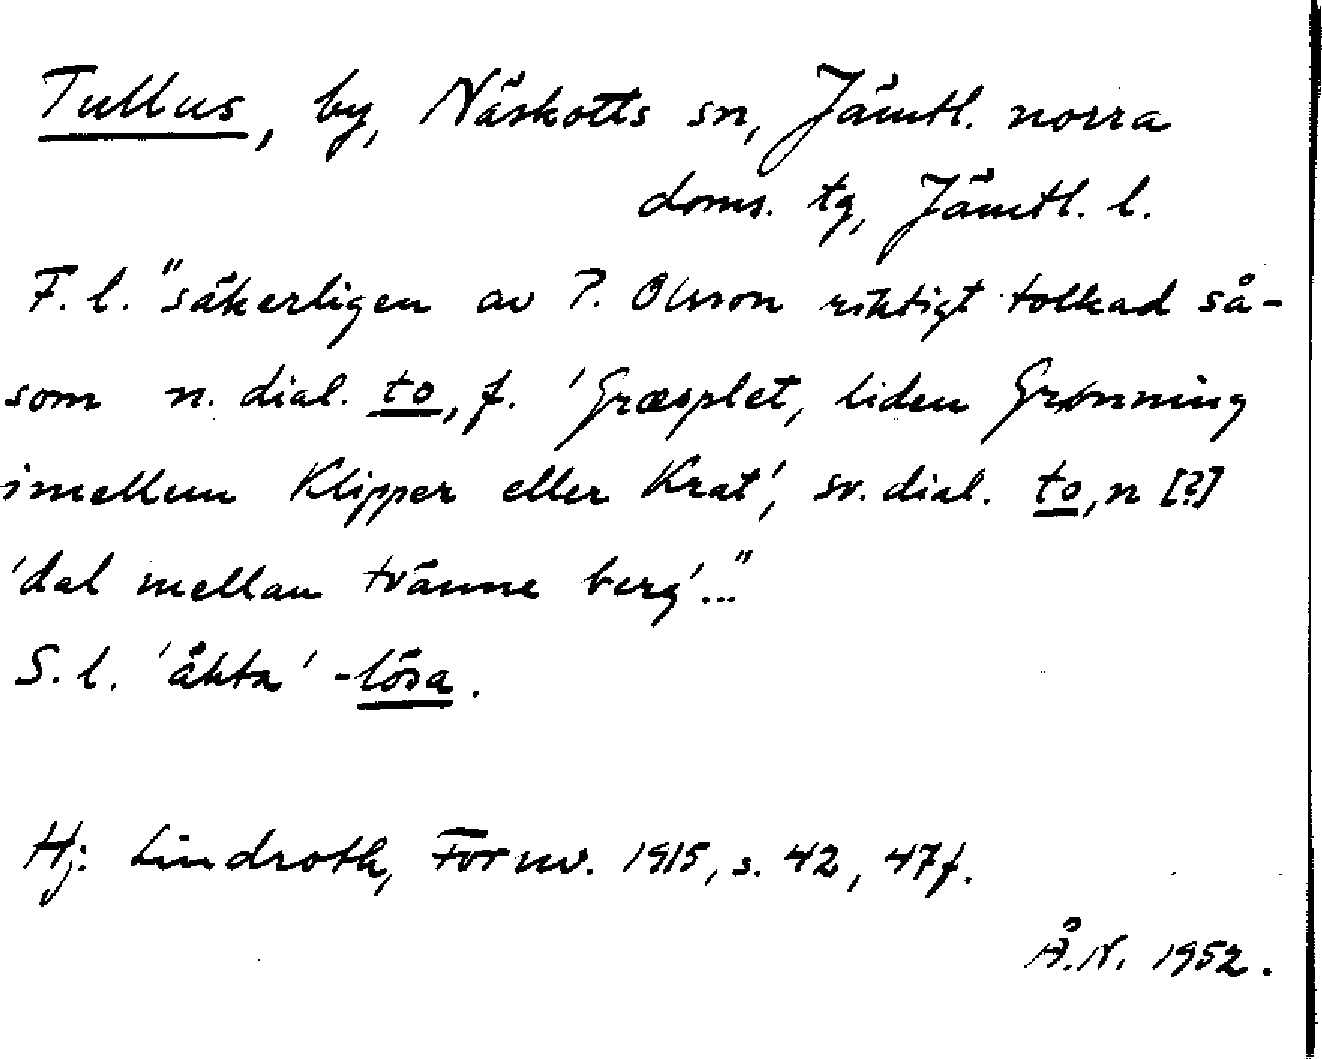 Tullus, by, Näskotts sn, Jämtl. norra
doms. tg, Jämtl. l.
F. l. "säkerligen av P. Olsson riktigt tolkad så-
som n. dial. to, f. 'Græsplet, liden Grønning
imellem Klipper eller Krat', sv. dial. to, n [?]
'dal mellan tvänne berg'..."
S. l. 'äkta' -lösa.
Hj. Lindroth, Fornv. 1915, s. 42, 47f.
Å.N. 1952.